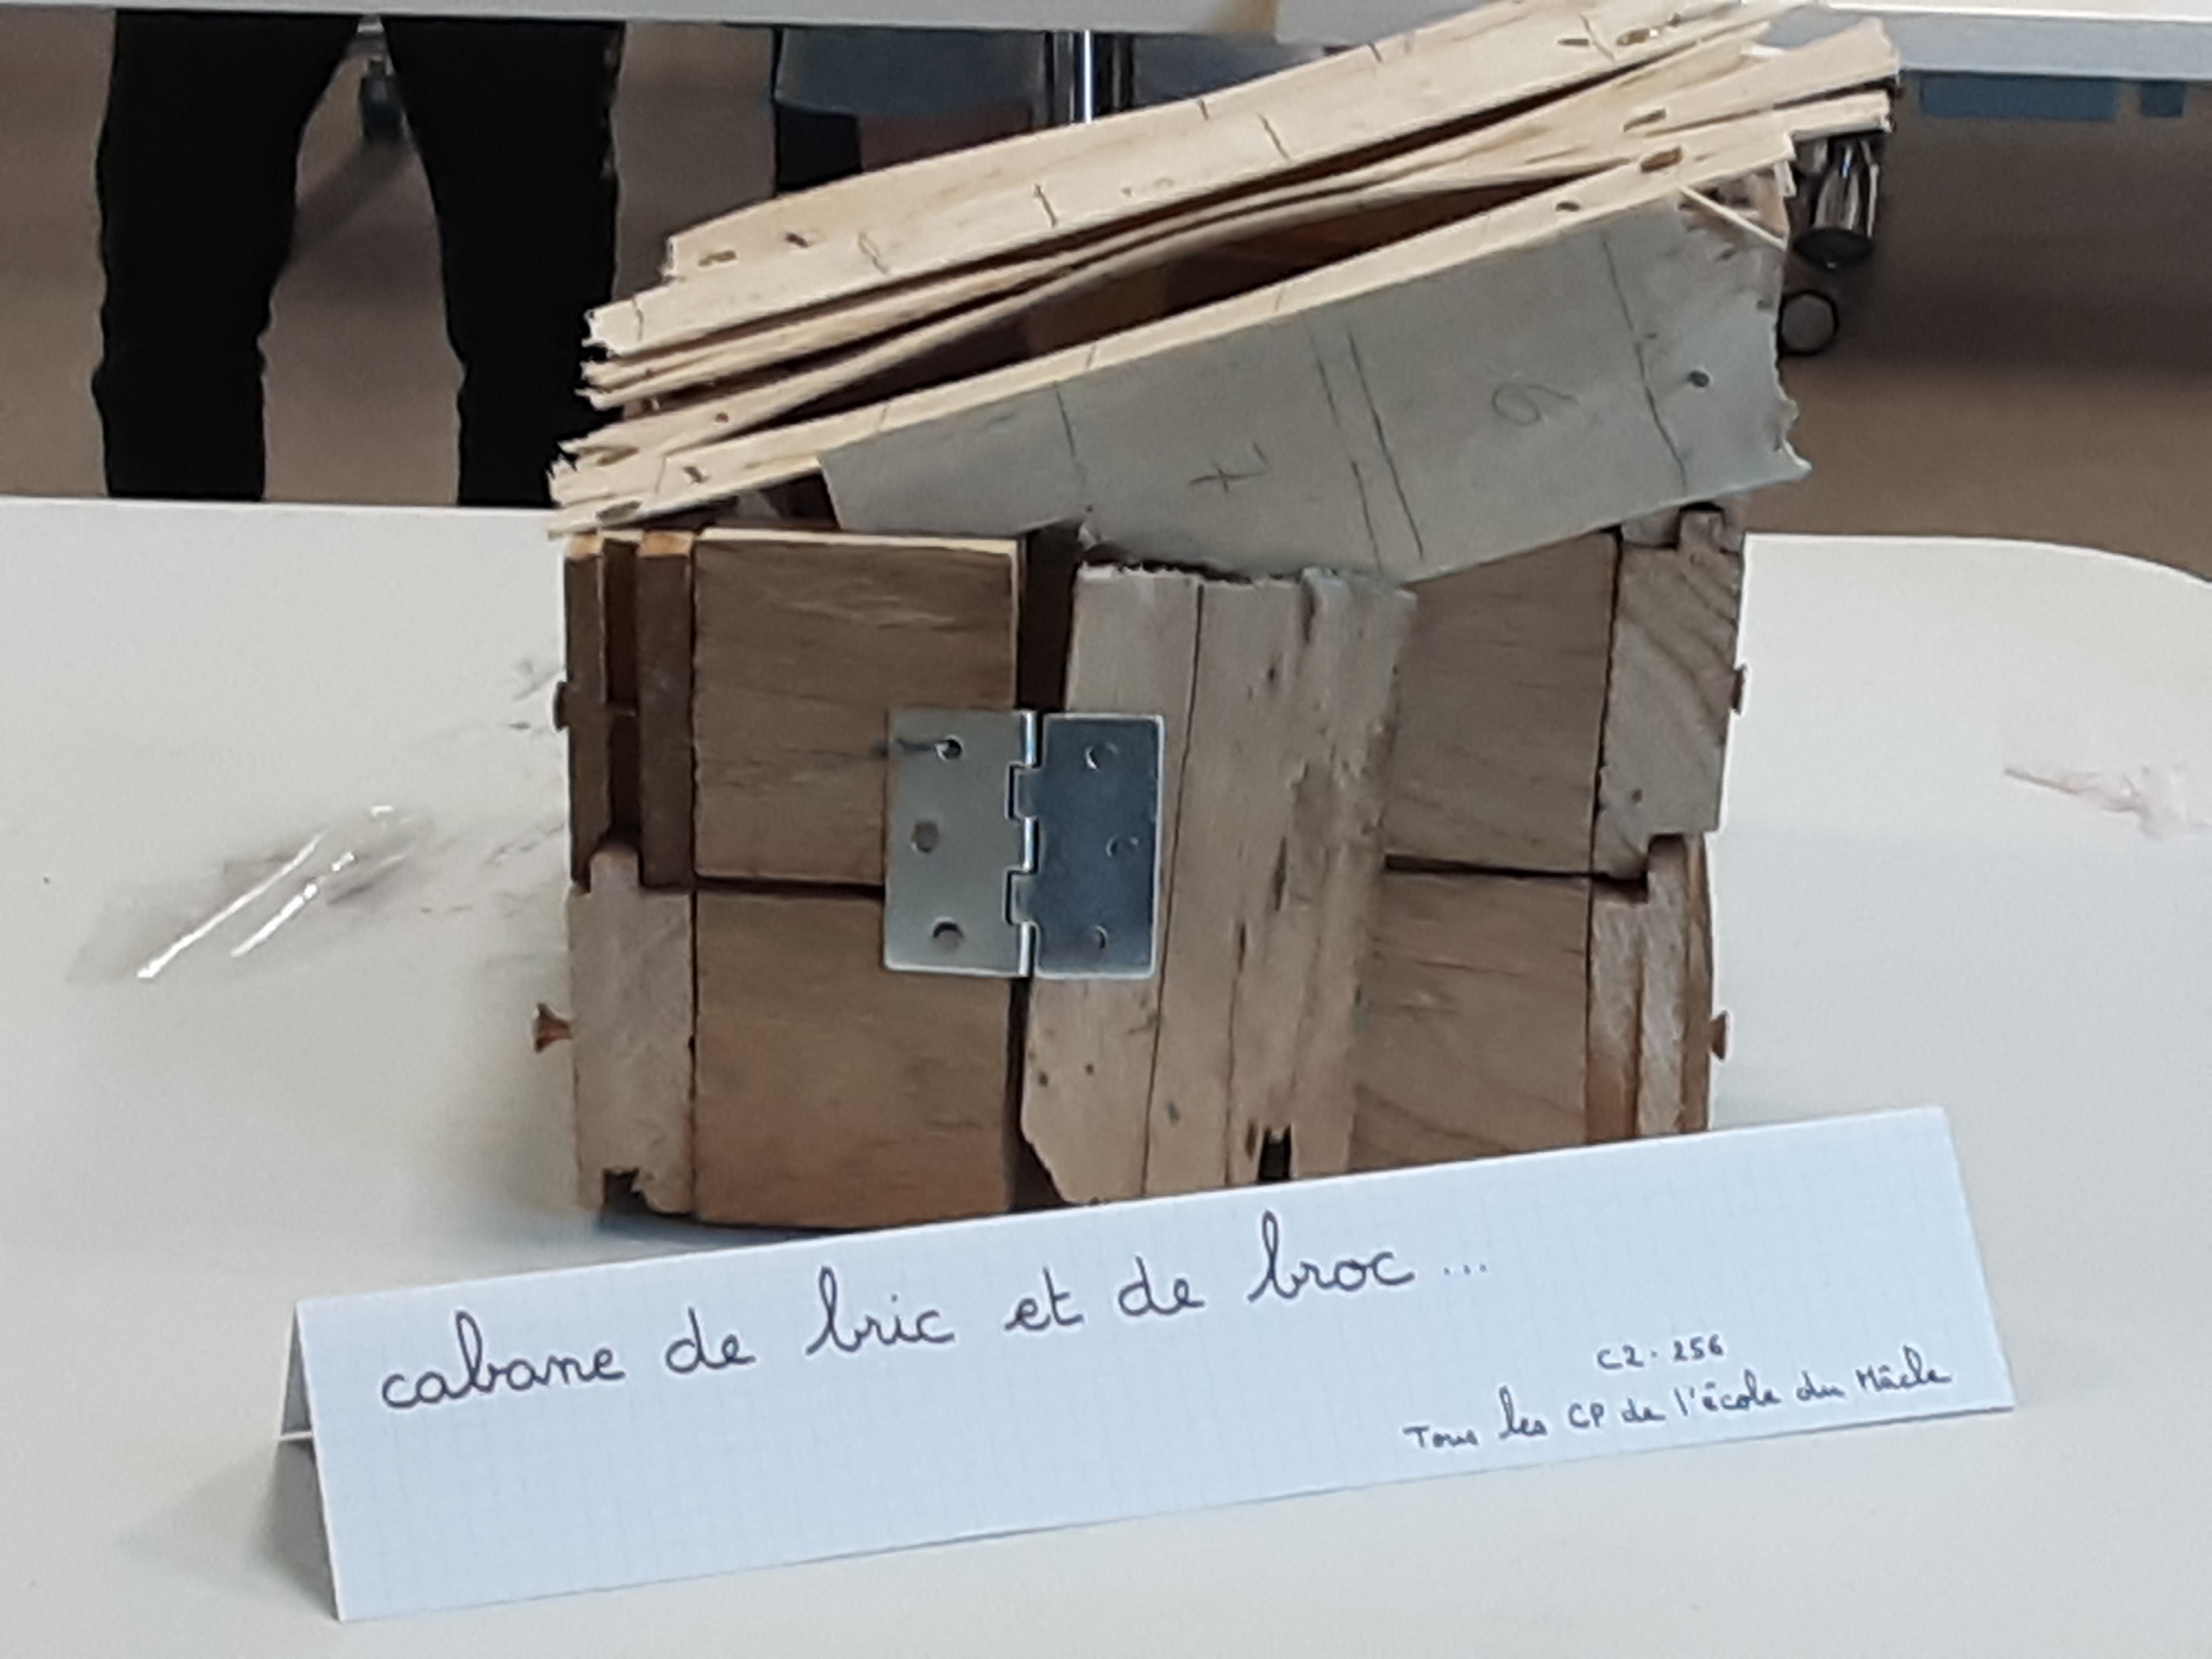 7 6
cabane de bric et de broc ...
C2-256
Tous les CP de l'école du Mâcle